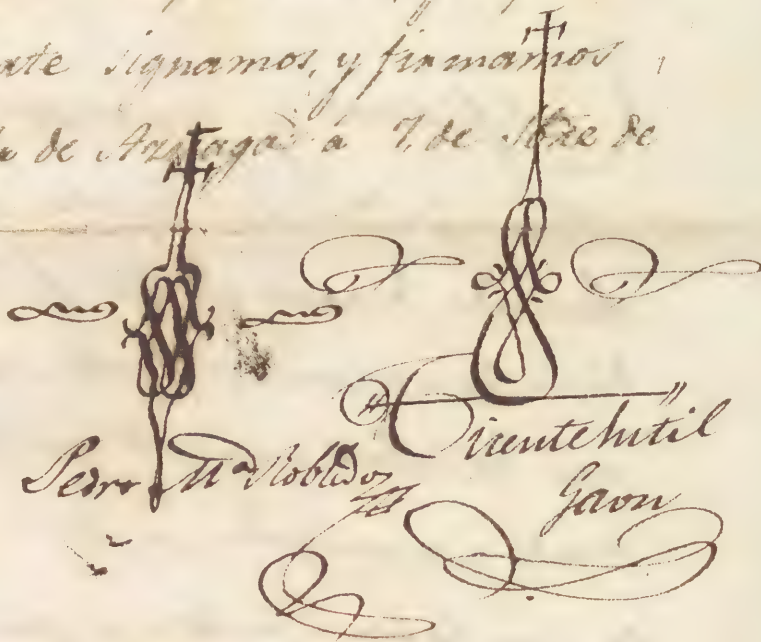 ate signamos, y firmamos
de Arriaga à 7, de Sbre de
Pedro Mª Robledo
Vicente hitil
Gaon